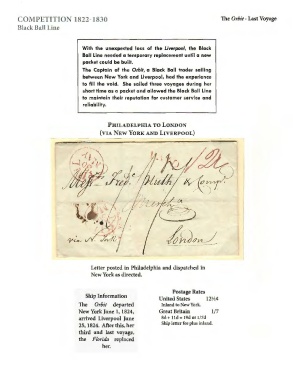 COMPETITION 1822-1830
The Orbit - Last Voyage
Black Ball Line
With the unexpected loss of the Liverpool, the Black
Ball Line needed a temporary replacement until a new
packet could be built.
The Captain of the Orbit, a Black Ball trader sailing
between New York and Liverpool, had the experience
to fill the void. She sailed three voyages during her
short time as a packet and allowed the Black Ball Line
to maintain their reputation for customer service and
reliability.
PHILADELPHIA TO LONDON
(VIA NEW YORK AND LIVERPOOL)
Mess. Fred. Huth & Comp.
London
via N. York
Letter posted in Philadelphia and dispatched to
New York as directed.
Ship Information
The Orbit departed
New York June 1, 1824,
arrived Liverpool June
25, 1824. After this, her
third and last voyage,
the Florida replaced
her.
Postage Rates
United States 12½¢
Inland to New York.
Great Britain 1/7
8d + 11d = 19d or 1/7d
Ship letter fee plus inland.